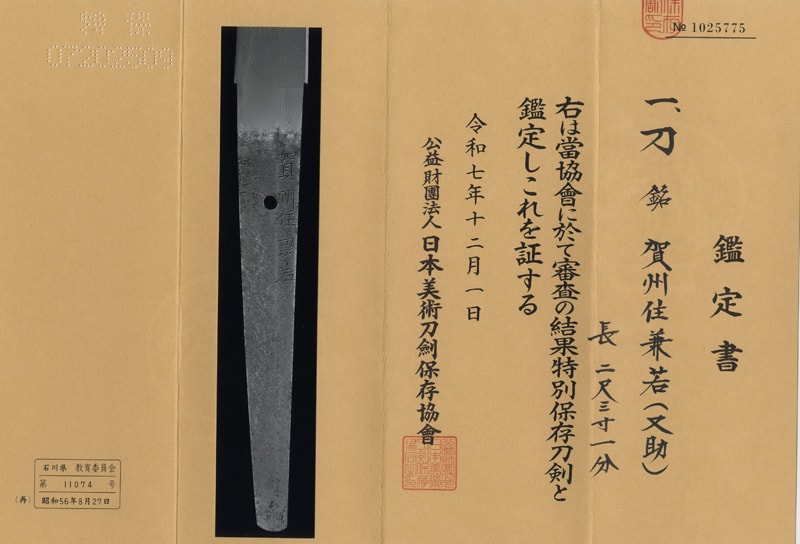 № 1025775
鑑定書
一、刀 銘 賀州住兼若(又助)
長 二尺三寸一分
右は當協會に於て審査の結果特別保存刀剣と
鑑定しこれを証する
令和七年十二月一日
公益財團法人 日本美術刀劍保存協會
賀州住兼若
07202509
石川県 教育委員会
第 11074 号
(再) 昭和56年8月27日